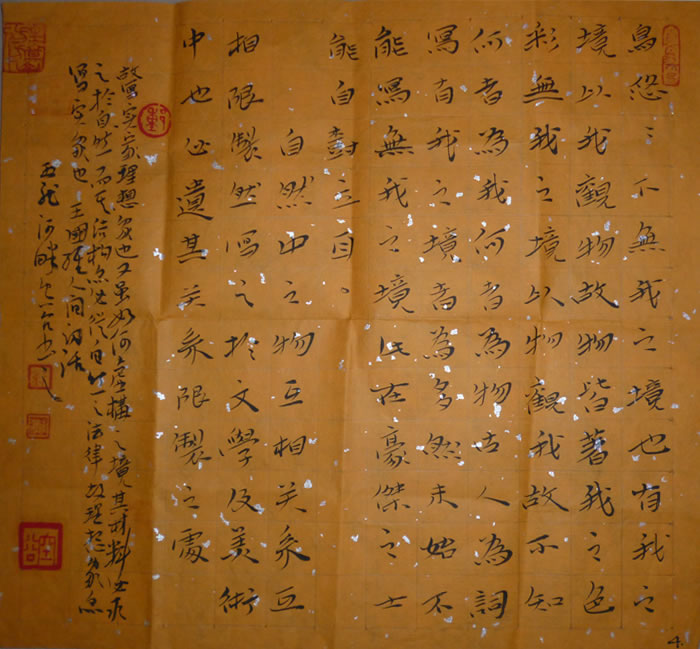 鳥悠〻 下無我之境也有我之
境以我觀物故物皆著我之色
彩無我之境以物觀我故不知
何者為我何者為物古人為詞
寫有我之境者為多然未始不
能寫無我之境此在豪傑之士
能自樹立耳。
自然中之物互相关系互
相限製然寫之於文學及美術
中也必遺其关系限製之處
故寫实家理想家也又虽如何虚構之境其材料必求
之於自然而其结构亦必從自然之法律故理想家亦
寫实家也 王國維人间词话
五龍河畔
4.